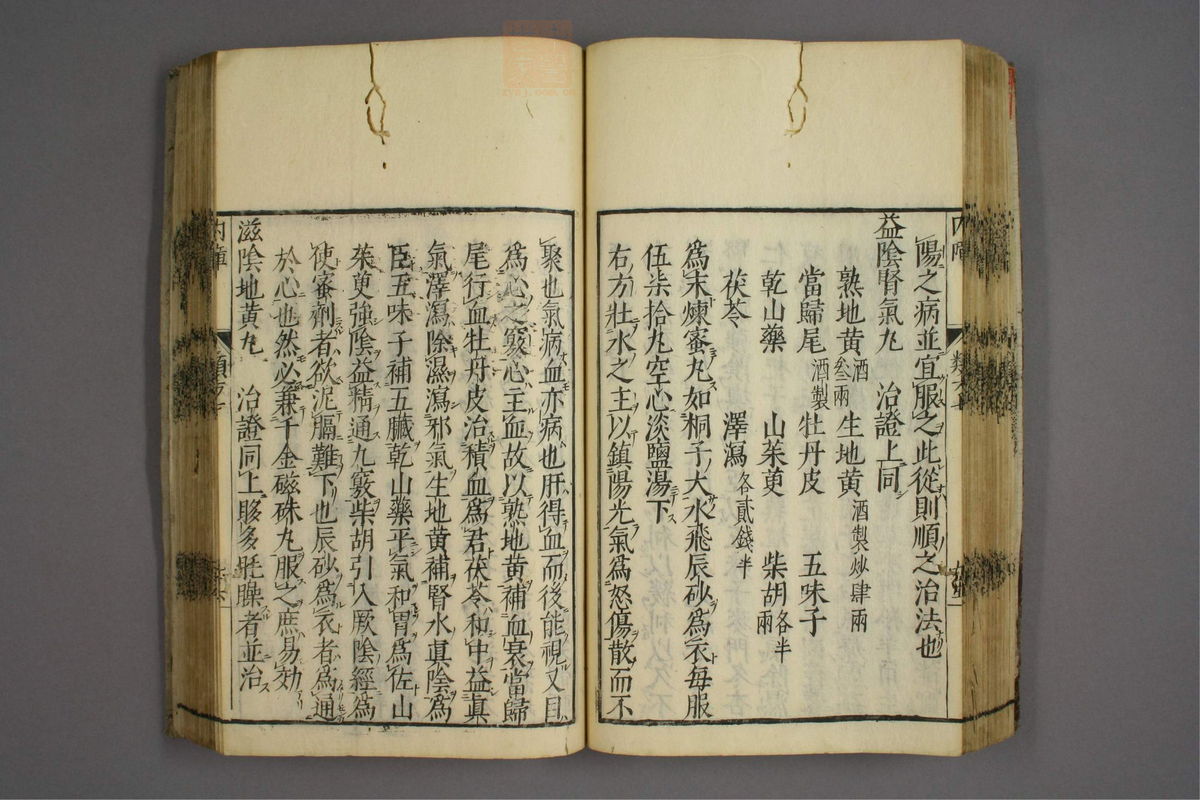 陽之病並宜服之此從則順之治法也
益陰腎氣丸 治證上同
熟地黃 酒叁兩 生地黃 酒製炒肆兩
當歸尾 酒製 牡丹皮 五味子
乾山藥 山茱萸 柴胡 各半兩
茯苓 澤瀉 各貳錢半
爲末煉蜜丸如桐子大水飛辰砂爲衣每服
伍柒拾丸空心淡鹽湯下
右方壯水之主以鎮陽光氣爲怒傷散而不
聚也氣病血亦病也肝得血而後能視又目
爲心之竅心主血故以熟地黃補血衰當歸
尾行血牡丹皮治積血爲君茯苓和中益眞
氣澤瀉除濕瀉邪氣生地黃補腎水眞陰爲
臣五味子補五臟乾山藥平氣和胃爲佐山
茱萸強陰益精通九竅柴胡引入厥陰經爲
使蜜劑者欲泥膈難下也辰砂爲衣者爲通
於心也然必兼千金磁硃丸服之庶易効
滋陰地黃丸 治證同上眵多眊矂者並治